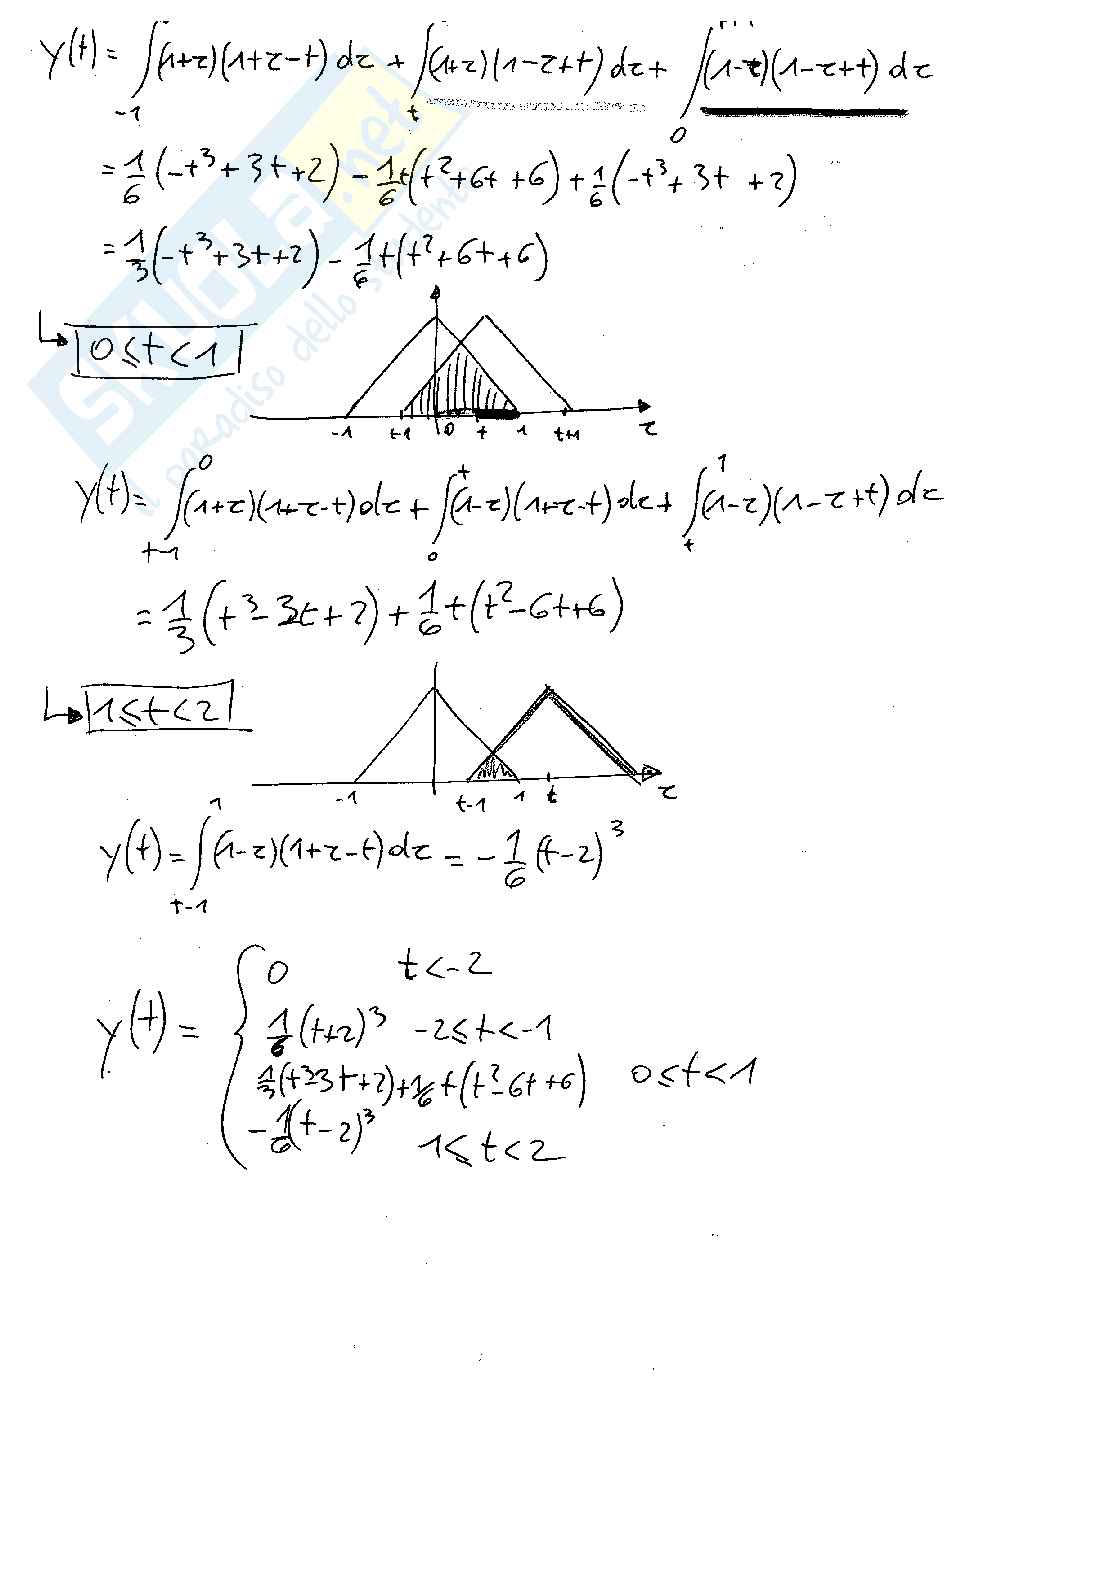 y(t) = ∫₋₁ (1+τ)(1+τ-t) dτ + ∫ₜ (1+τ)(1-τ+t) dτ + ∫₀ (1-τ)(1-τ+t) dτ
= 1/6 (-t³+3t+2) - 1/6 t(t²+6t+6) + 1/6 (-t³+3t+2)
= 1/3 (-t³+3t+2) - 1/6 t(t²+6t+6)
↳ 0≤t<1
-1 t-1 0 t 1 t+1 τ
y(t) = ∫_{t-1}^{0} (1+τ)(1+τ-t) dτ + ∫_{0}^{t} (1-τ)(1+τ-t) dτ + ∫_{t}^{1} (1-τ)(1-τ+t) dτ
= 1/3 (t³-3t+2) + 1/6 t(t²-6t+6)
↳ 1≤t<2
-1 t-1 1 t τ
y(t) = ∫_{t-1}^{1} (1-τ)(1+τ-t) dτ = -1/6 (t-2)³
y(t) = { 0 t<-2
1/6 (t+2)³ -2≤t<-1
1/3 (t³-3t+2) + 1/6 t(t²-6t+6) 0≤t<1
-1/6 (t-2)³ 1≤t<2
SKUOLA.net
il paradiso dello studente